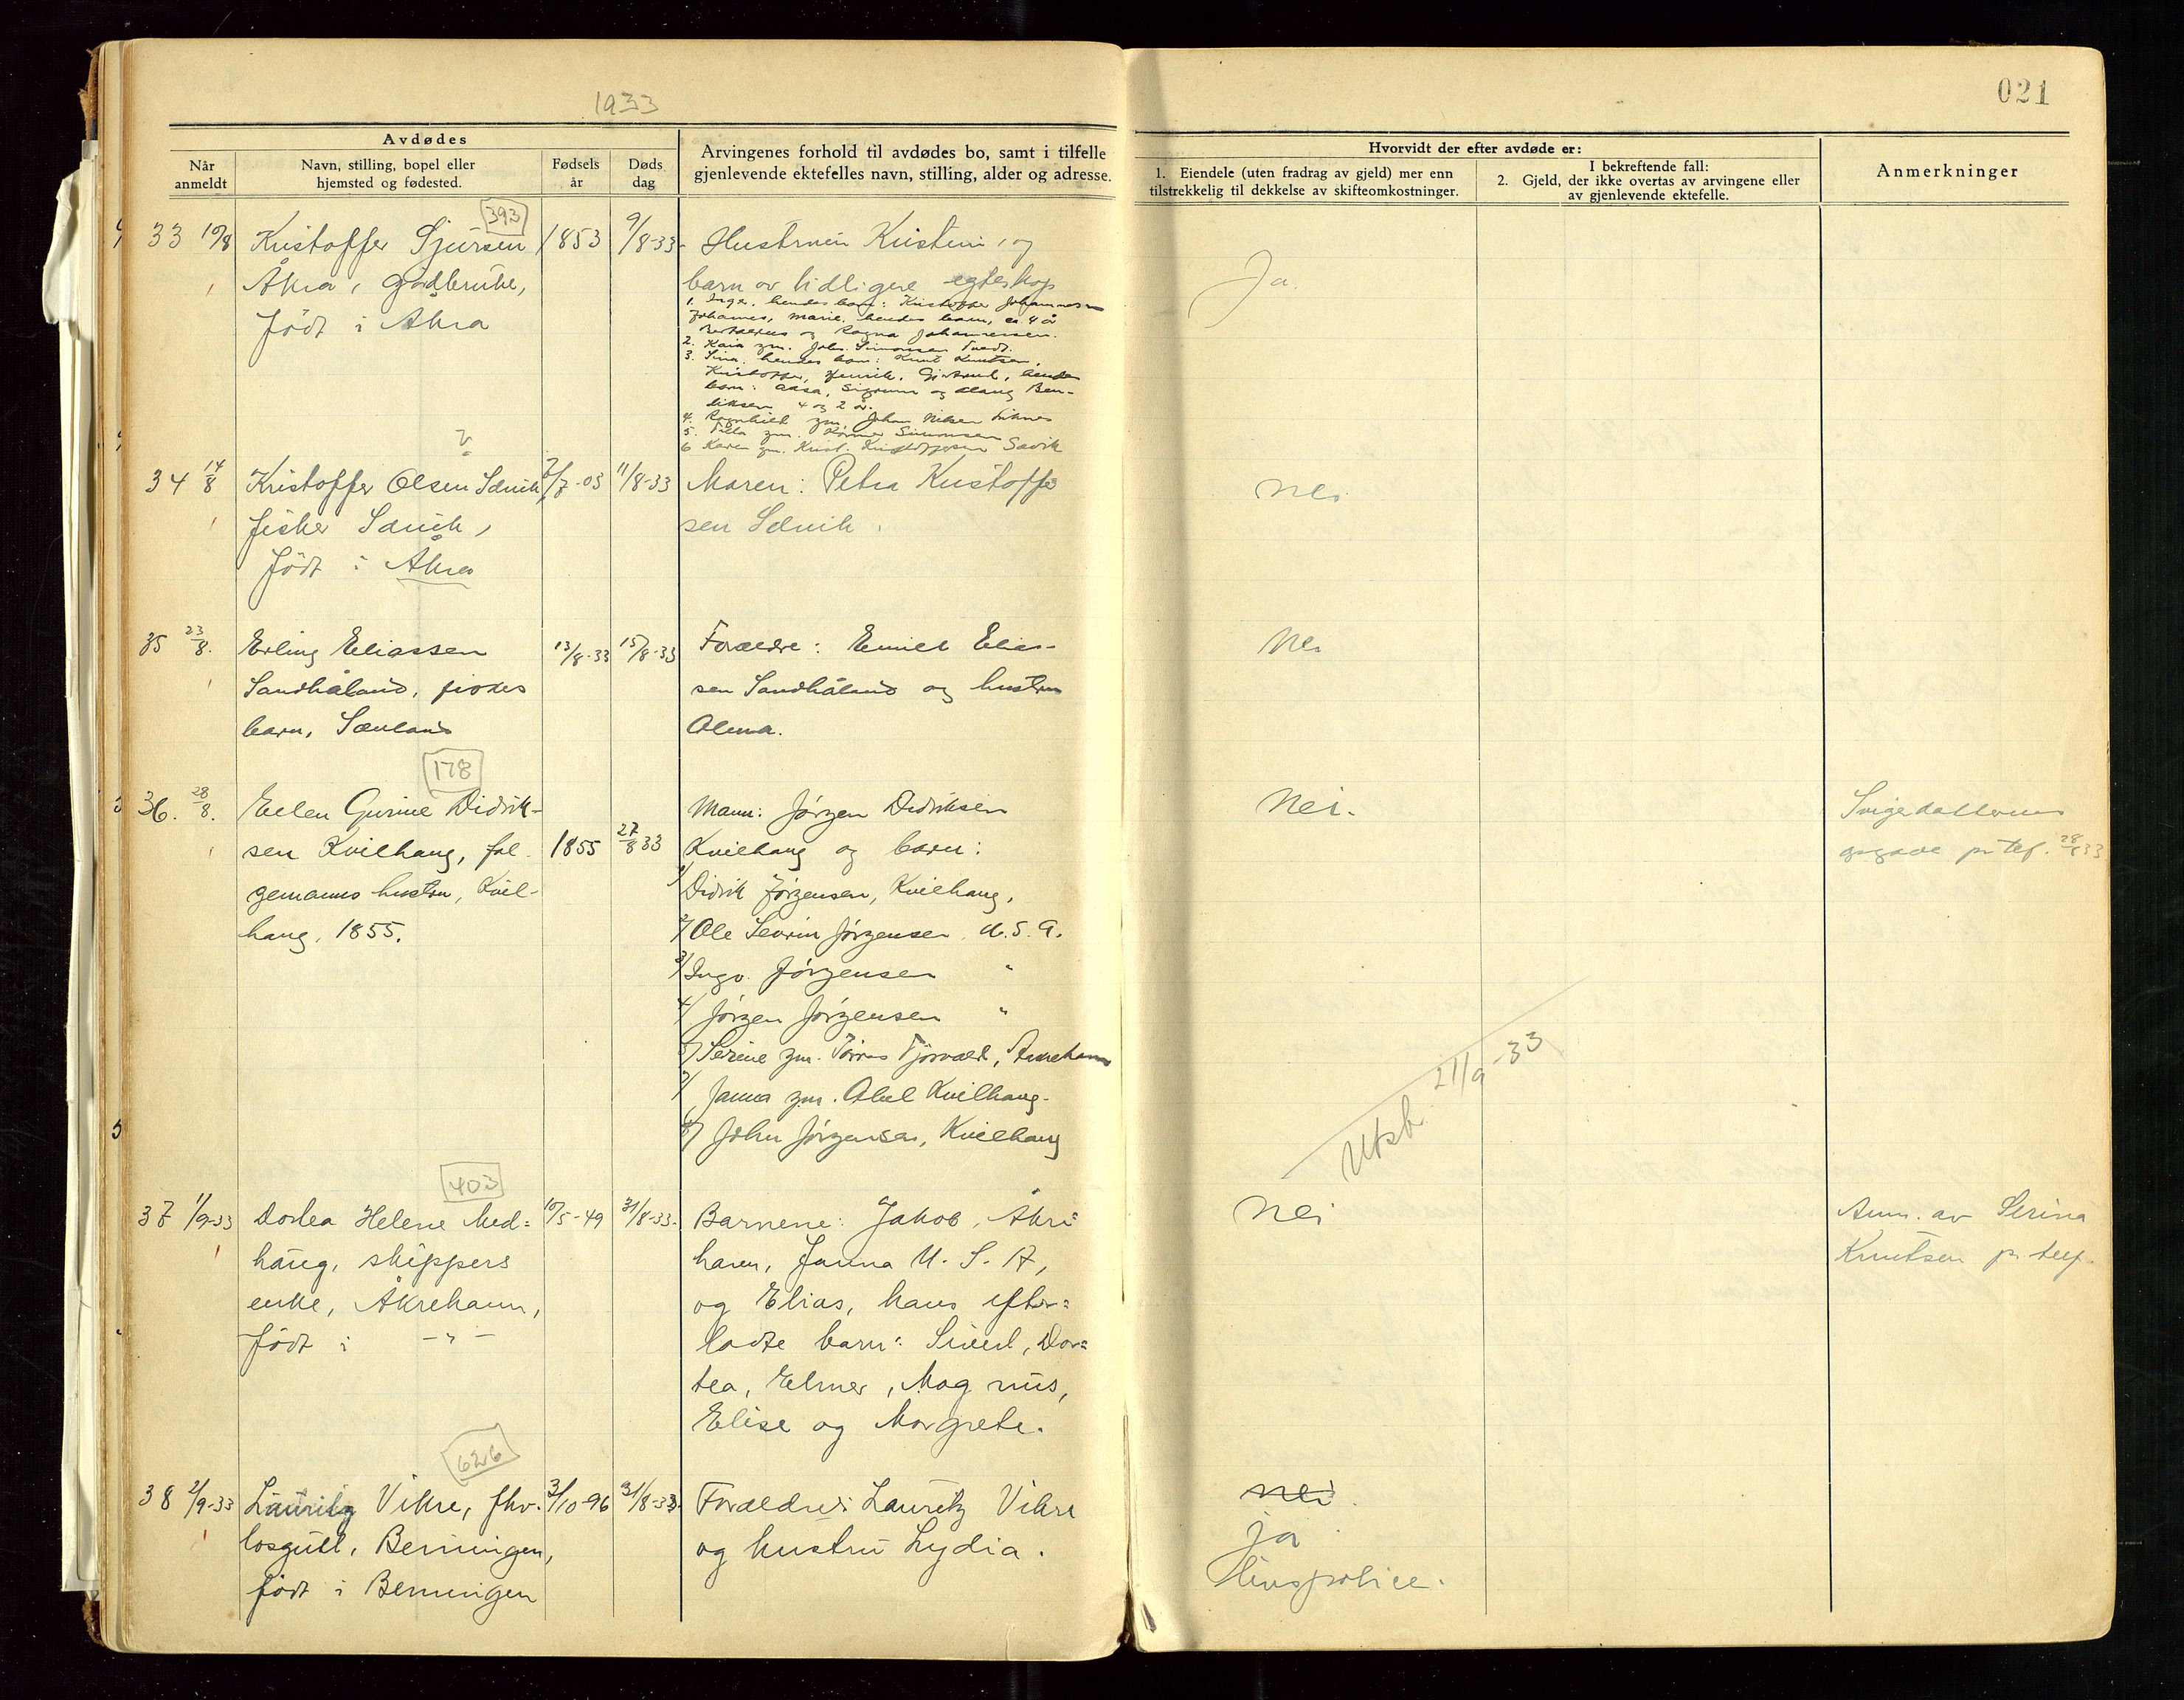 1933
021
Avdødes
Når anmeldt
Navn, stilling, bopel eller hjemsted og fødested.
Fødsels år
Døds dag
Arvingenes forhold til avdødes bo, samt i tilfelle
gjenlevende ektefelles navn, stilling, alder og adresse.
Hvorvidt der efter avdøde er:
1. Eiendele (uten fradrag av gjeld) mer enn
tilstrekkelig til dekkelse av skifteomkostninger.
I bekreftende fall:
2. Gjeld, der ikke overtas av arvingene eller
av gjenlevende ektefelle.
Anmerkninger
393
33 10/8 Kristoffer Sjursen 1853 9/8-33 Hustruen Kristine, og
Åkra, gårdbruker, barn av tidligere egteskap
født i Åkra
Ja.
1. Inger, hendes barn: Kristoffer Johannesen
Johannes, Marie, hendes barn, 4 år
og Ragna Johannessen.
2. Kaia gm. Johs. Simonsen Tvedt.
3. Sina, hendes barn: Knut Knutsen,
Kristoffer, Henrik, Gjertrud, hendes
barn: Aasa, Sigrunn og Aslaug Ben-
diksen 4 og 2 år.
4. Ragnhild gm. Johan Nilsen
5. gm. Simonsen
6 Karen gm. Krist. Kristoffersen Sævik
34 14/8 Kristoffer Olsen Sævik 7-03 11/8-33 Moren: Petra Kristoffer
fisker Sævik, sen Sævik.
født i Åkra
Nei
35 23/8. Erling Eliassen 13/8-33 15/8-33 Forældre: Emiel Elias-
Sandhåland, sen Sandhåland og hustru
barn, Sævland Alma.
Nei
178
36. 28/8. Ellen Gurine Didrik- Mann: Jørgen Didriksen
sen Kvilhaug, føl- 1855 27/8 33 Kvilhaug og barn:
gemanns hustru, Kvil-
haug, 1855.
Nei.
Svigerdatteren
opgave pr tlf. 28/8 33
1/ Didrik Jørgensen, Kvilhaug,
2/ Ole Sevrin Jørgensen, U.S.A.
3/ Ingv. Jørgensen "
4/ Jørgen Jørgensen "
5/ Serine gm. Tørres Fjorvald, Åkrehamn
Janna gm. Abel Kvilhaug.
John Jørgensen, Kvilhaug
Utsb. 21/9-33
403
37 1/9-33 Dortea Helene Med= 10/5-49 31/8-33. Barnene: Jakob, Åkre
haug, skippers havn, Janna U.S.A,
enke, Åkrehavn, og Elias, hans efter=
født i - " - ladte barn: Sivert, Dor=
tea, Elmer, Magnus,
Elise og Margrete.
Nei
Anm. av Serina
Knutsen pr telf.
626
38 2/9-33 Lauritz Vikre, fhv. 3/10-96 31/8-33. Forældre: Lauritz Vikre
losgutt, Benningen, og hustru Lydia.
født i Benningen
nei.
ja
livspolice.